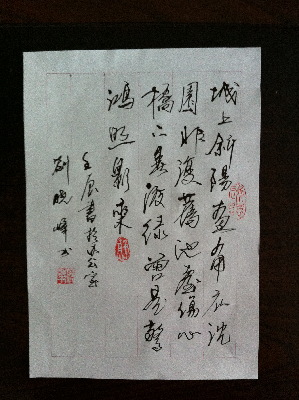 城上斜陽畫角哀沈
園非復舊池臺傷心
橋下春波綠曾是驚
鴻照影來
壬辰書於办公室
劉曉峰书